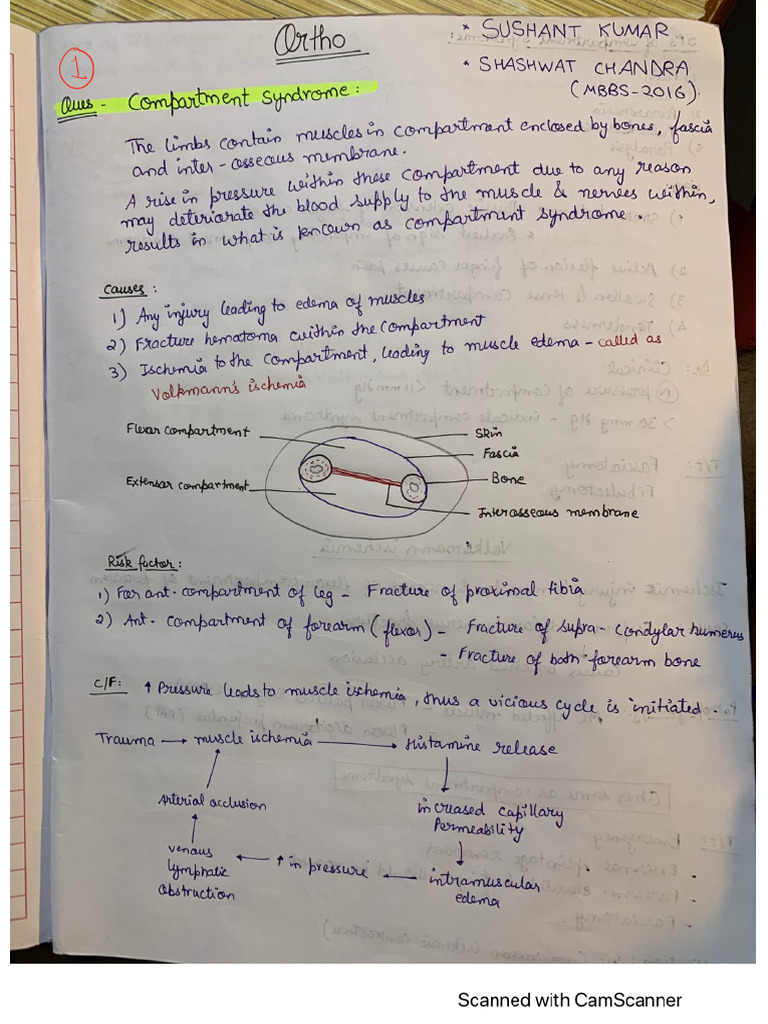 Ortho
* SUSHANT KUMAR
* SHASHWAT CHANDRA
(MBBS-2016)
1
Ques - Compartment Syndrome:
The limbs contain muscles in compartment enclosed by bones, fascia
and inter-osseous membrane.
A rise in pressure within these compartment due to any reason
may deteriorate the blood supply to the muscle & nerves within,
results in what is known as compartment syndrome.
Causes:
1) Any injury leading to edema of muscles
2) Fracture hematoma within the compartment
3) Ischemia to the compartment, leading to muscle edema - called as
Volkmann's ischemia
Flexor compartment
Skin
Fascia
Extensor compartment
Bone
Interosseous membrane
Risk factor:
1) For ant. compartment of leg - Fracture of proximal tibia
2) Ant. compartment of forearm (flexor) - Fracture of supra-condylar humerus
- Fracture of both forearm bone
C/F: ↑ Pressure leads to muscle ischemia, thus a vicious cycle is initiated.
Trauma → muscle ischemia → Histamine release
Arterial occlusion
increased capillary
Permeability
venous
lymphatic
obstruction
← ↑ in pressure ←
intramuscular
edema
Scanned with CamScanner